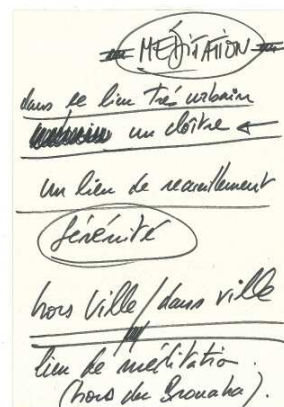 MÉDITATION
dans le lieu très urbain
un cloître
un lieu de recueillement
Sérénité
hors ville / dans ville
lieu de méditation.
(hors du Brouaha).